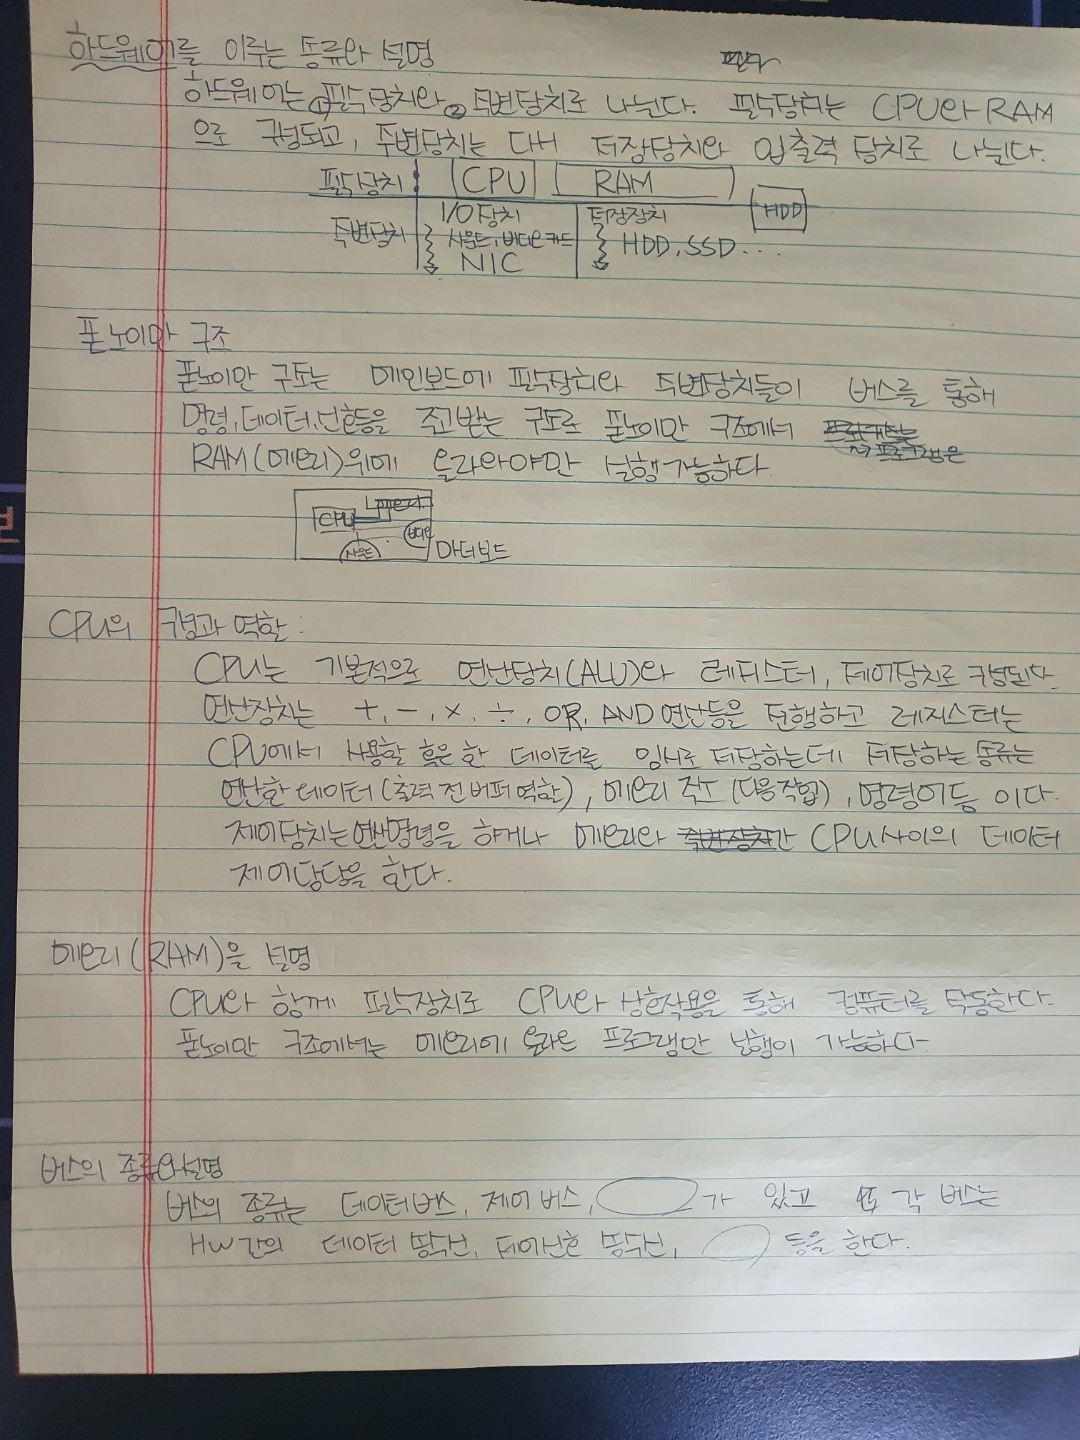 하드웨어를 이루는 종류와 설명
하드웨어는 ①필수장치와 ②주변장치로 나뉜다. 필수장치는 CPU와 RAM
으로 구성되고, 주변장치는 다시 저장장치와 입출력 장치로 나뉜다.
필수장치 CPU RAM
주변장치 I/O장치 저장장치 HDD
사운드, 비디오 카드 HDD, SSD...
NIC
폰노이만 구조
폰노이만 구조는 메인보드에 필수장치와 주변장치들이 버스를 통해
명령, 데이터, 신호등을 주고받는 구조로 폰노이만 구조에서
프로그램은
RAM(메모리)위에 올라와야만 실행가능하다.
CPU 메모리
사운드 비디오 마더보드
CPU의 구성과 역할:
CPU는 기본적으로 연산장치(ALU)와 레지스터, 제어장치로 구성된다.
연산장치는 +, -, ×, ÷, OR, AND 연산등을 진행하고 레지스터는
CPU에서 사용할 혹은 한 데이터를 임시로 저장하는데 저장하는 종류는
연산한 데이터(출력 전 버퍼 역할), 메모리 주소 (다음작업), 명령어등 이다.
제어장치는 연산명령을 하거나 메모리와 주변장치간 CPU사이의 데이터
제어담당을 한다.
메모리(RAM)을 설명
CPU와 함께 필수장치로 CPU와 상호작용을 통해 컴퓨터를 작동한다.
폰노이만 구조에서는 메모리에 올라온 프로그램만 실행이 가능하다.
버스의 종류와 설명
버스의 종류는 데이터버스, 제어 버스, 가 있고 각 버스는
HW간의 데이터 송수신, 제어신호 송수신, 등을 한다.